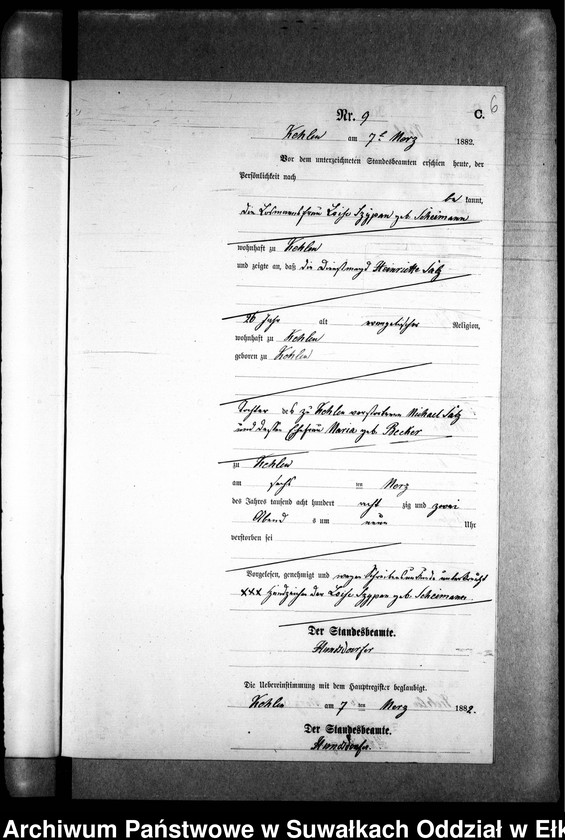 6
Nr. 9 C.
Kehlen am 7t Merz 1882.
Vor dem unterzeichneten Standesbeamten erschien heute, der
Persönlichkeit nach
be kannt,
die Losmannsfrau Loise Szypan geb. Scheimann
wohnhaft zu Kehlen
und zeigte an, daß die Dienstmagd Heinriette Salz
26 Jahr alt evangelischer Religion,
wohnhaft zu Kehlen
geboren zu Kehlen
Tochter des zu Kehlen verstorbenen Michael Salz
und dessen Ehefrau Maria geb. Becker
zu Kehlen
am sechs ten Merz
des Jahres tausend acht hundert acht zig und zwei
Abend s um neun Uhr
verstorben sei
Vorgelesen, genehmigt und wegen Schreibensunkunde unterkreuzt
××× Handzeichen der Loise Szypan geb. Scheimann
Der Standesbeamte.
Die Uebereinstimmung mit dem Hauptregister beglaubigt.
Kehlen am 7 ten Merz 1882.
Der Standesbeamte.
Archiwum Państwowe w Suwałkach Oddział w Ełk